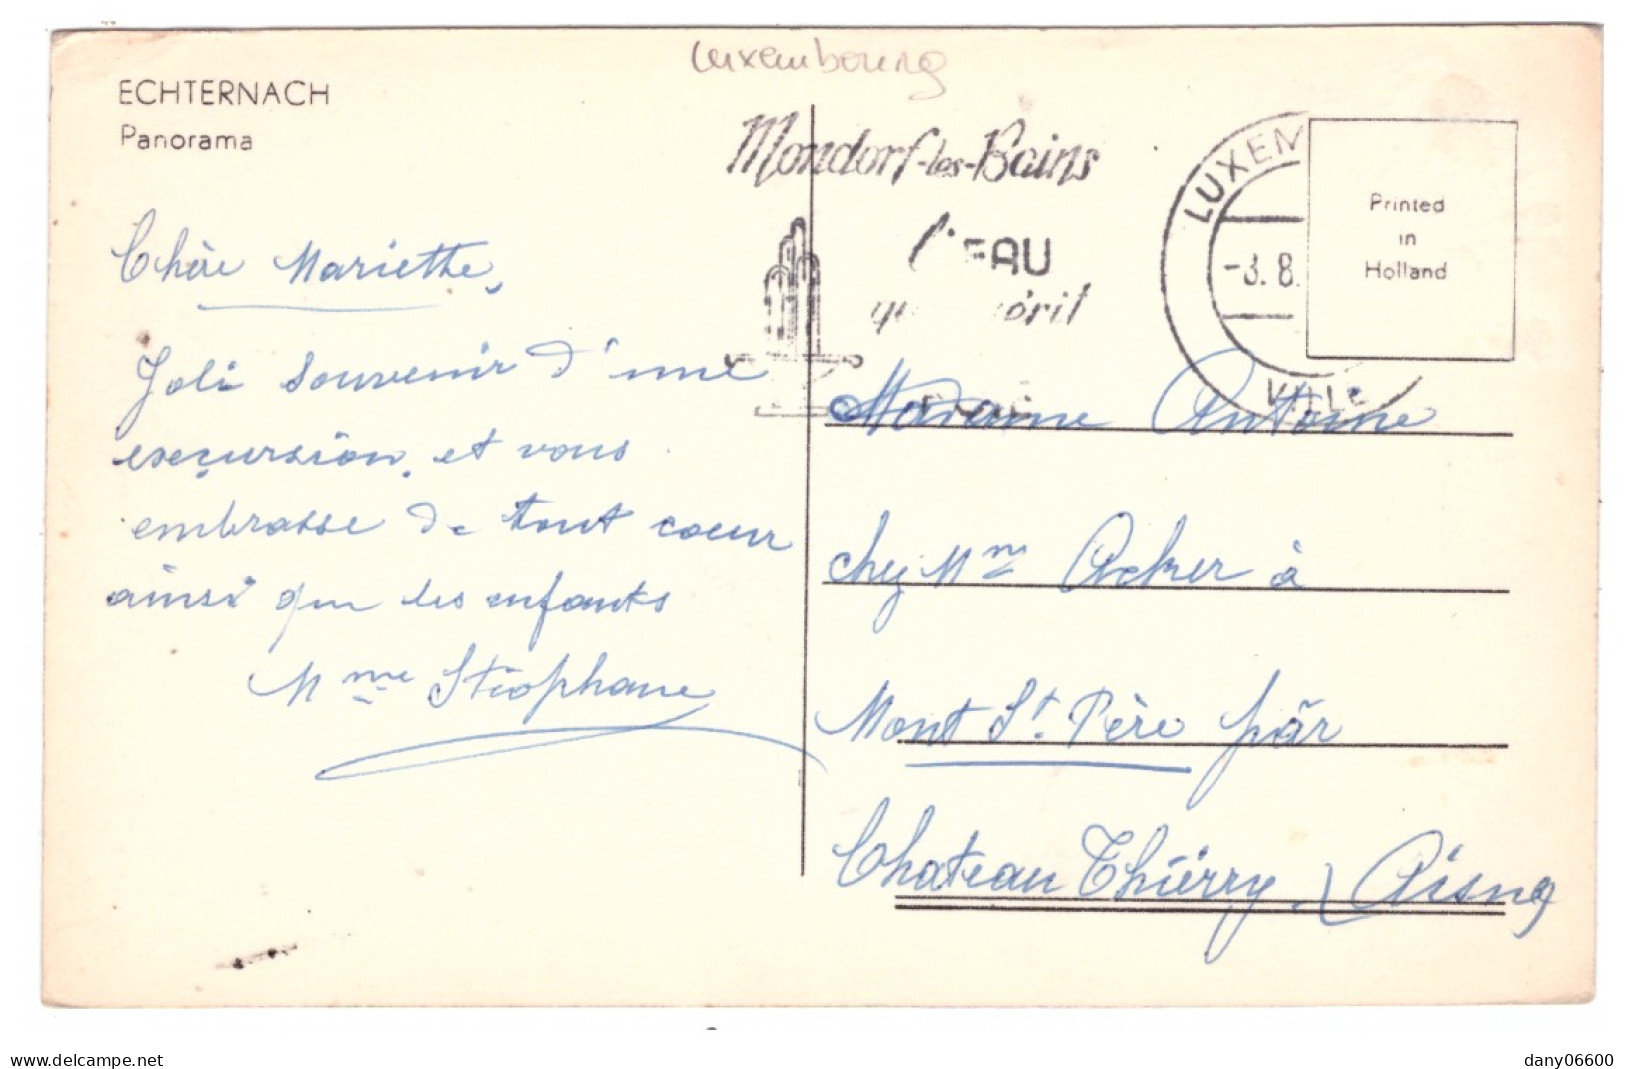 Luxembourg
ECHTERNACH
Panorama
Mondorf-les-Bains
l'EAU
LUXEM
-3.8.
VILLE
Printed
in
Holland
Chère Mariette,
Joli souvenir d'une
exçursion, et vous
embrasse de tout coeur
ainsi que les enfants
Mme Stéophane
Madame Antoine
chez Mme Acker à
Mont St. Père par
Chateau Thierry (Aisne)
www.delcampe.net
dany06600